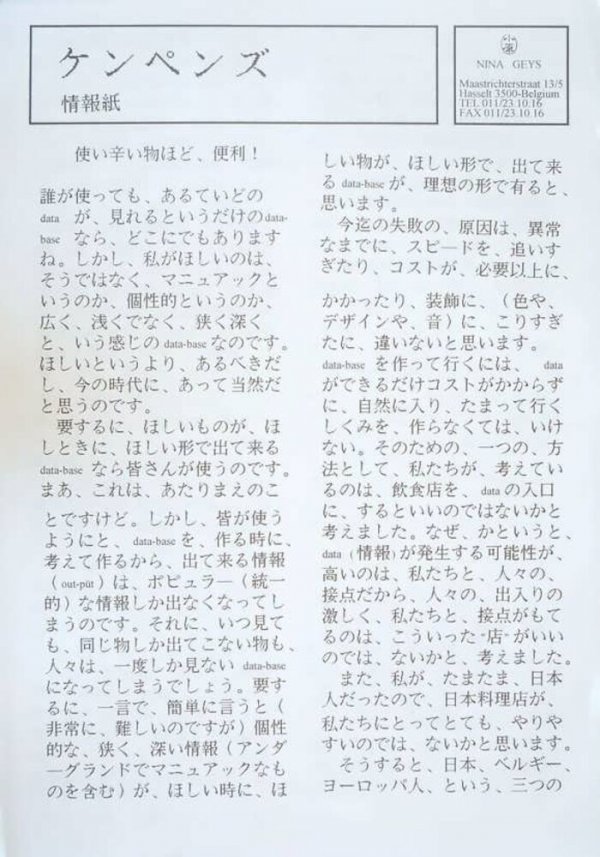 ケンペンズ
情報紙
NINA GEYS
Maastrichterstraat 13/5
Hasselt 3500-Belgium
TEL 011/23.10.16
FAX 011/23.10.16
使い辛い物ほど、便利！
誰が使っても、あるていどの
data が、見れるというだけのdata-
base なら、どこにでもあります
ね。しかし、私がほしいのは、
そうではなく、マニュアックと
いうのか、個性的というのか、
広く、浅くでなく、狭く深く
と、いう感じの data-base なのです。
ほしいというより、あるべきだ
し、今の時代に、あって当然だ
と思うのです。
要するに、ほしいものが、ほ
しときに、ほしい形で出て来る
data-base なら皆さんが使うのです。
まあ、これは、あたりまえのこ
とですけど。しかし、皆が使う
ようにと、data-base を、作る時に、
考えて作るから、出て来る情報
（out-put）は、ポピュラー（統一
的）な情報しか出なくなってし
まうのです。それに、いつ見て
も、同じ物しか出てこない物も、
人々は、一度しか見ない data-base
になってしまうでしょう。要す
るに、一言で、簡単に言うと（
非常に、難しいのですが）個性
的な、狭く、深い情報（アンダ
ーグランドでマニュアックなも
のを含む）が、ほしい時に、ほ
しい物が、ほしい形で、出て来
る data-base が、理想の形で有ると、
思います。
今迄の失敗の、原因は、異常
なまでに、スピードを、追いす
ぎたり、コストが、必要以上に、
かかったり、装飾に、（色や、
デザインや、音）に、こりすぎ
たに、違いないと思います。
data-base を作って行くには、 data
ができるだけコストがかからず
に、自然に入り、たまって行く
しくみを、作らなくては、いけ
ない。そのための、一つの、方
法として、私たちが、考えてい
るのは、飲食店を、data の入口
に、するといいのではないかと
考えました。なぜ、かというと、
data（情報）が発生する可能性が、
高いのは、私たちと、人々の、
接点だから、人々の、出入りの
激しく、私たちと、接点がもて
るのは、こういった “店” がいい
のでは、ないかと、考えました。
また、私が、たまたま、日本
人だったので、日本料理店が、
私たちにとってとても、やりや
すいのでは、ないかと思います。
そうすると、日本、ベルギー、
ヨーロッパ人、という、三つの